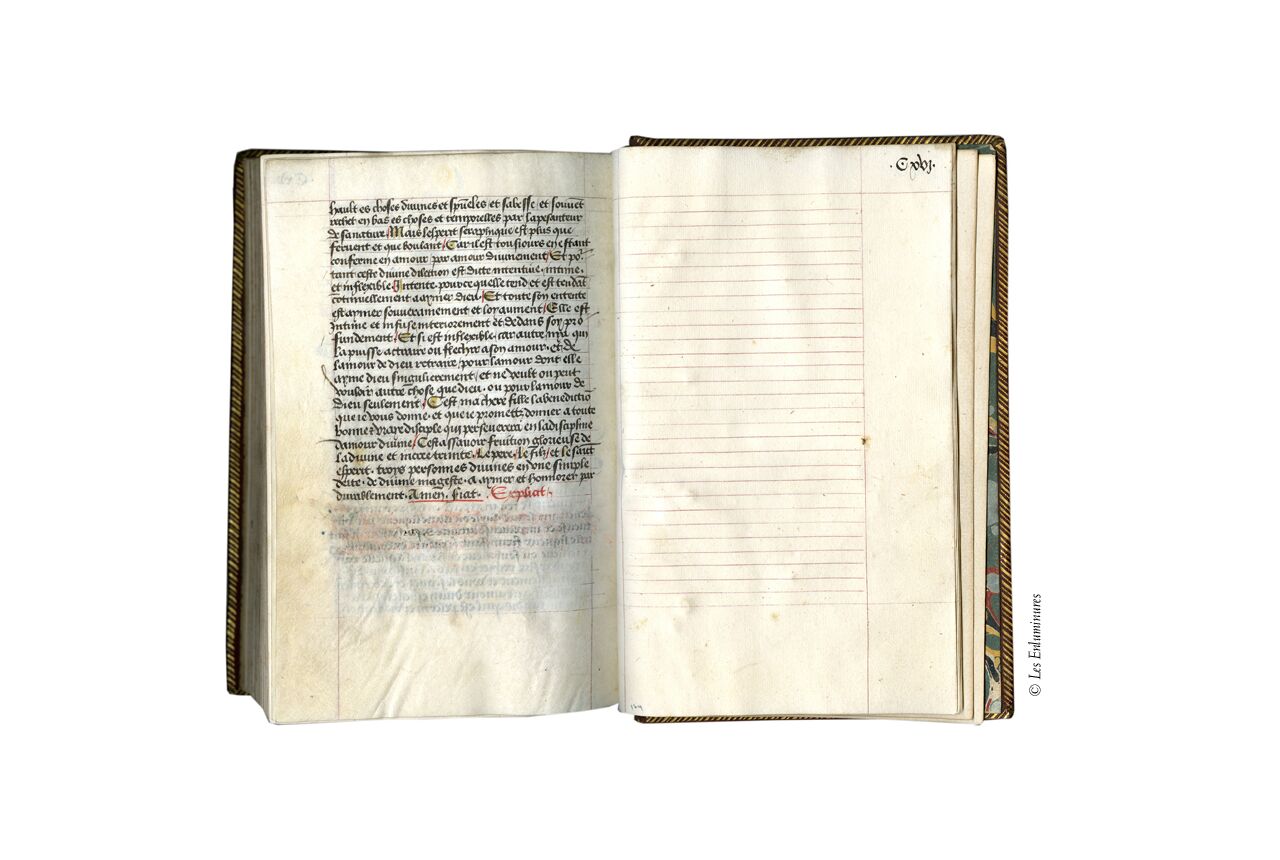 hault es choses divines et spũeles et sabesse et souvẽt
rechet en bas es choses et temporelles par la pesanteur
de sa nature / Mais lesperit seraphique est plus que
fervent et que boulant / Car il est tousiours en estant
conferme en amour par amour divinement / Et põ
tant ceste divine dilection est dicte intentive intime
et inflexible / Intente pource quelle tend et est tendãt
cõtinuellement a aymer dieu / Et toute son entente
est aymer souverainement et loyaument / Elle est
intime et infuse interiorement et dedans soy pro
fundement / Et si est inflexible car autre nya qui
la puisse attraire ou flechir a son amour et de
lamour de dieu retraire / pour lamour dont elle
ayme dieu singulierement / et ne veult ou peut
vouloir autre chose que dieu ou pour lamour de
dieu seulement / Cest ma chere fille la benedictiõ
que ie vous donne et que ie prometz donner a toute
bonne & vraye disciple qui perseverera en la disapline
damour divine / Cest assavoir fruition glorieuse de
la divine et incree trinite Le pere / le filz / et le saĩt
esperit troys personnes divines en vne simple
deite de divine mageste a aymer et honnorer par
durablement Amen fiat Explicit
.Cxvi.
124
© Les Enluminures